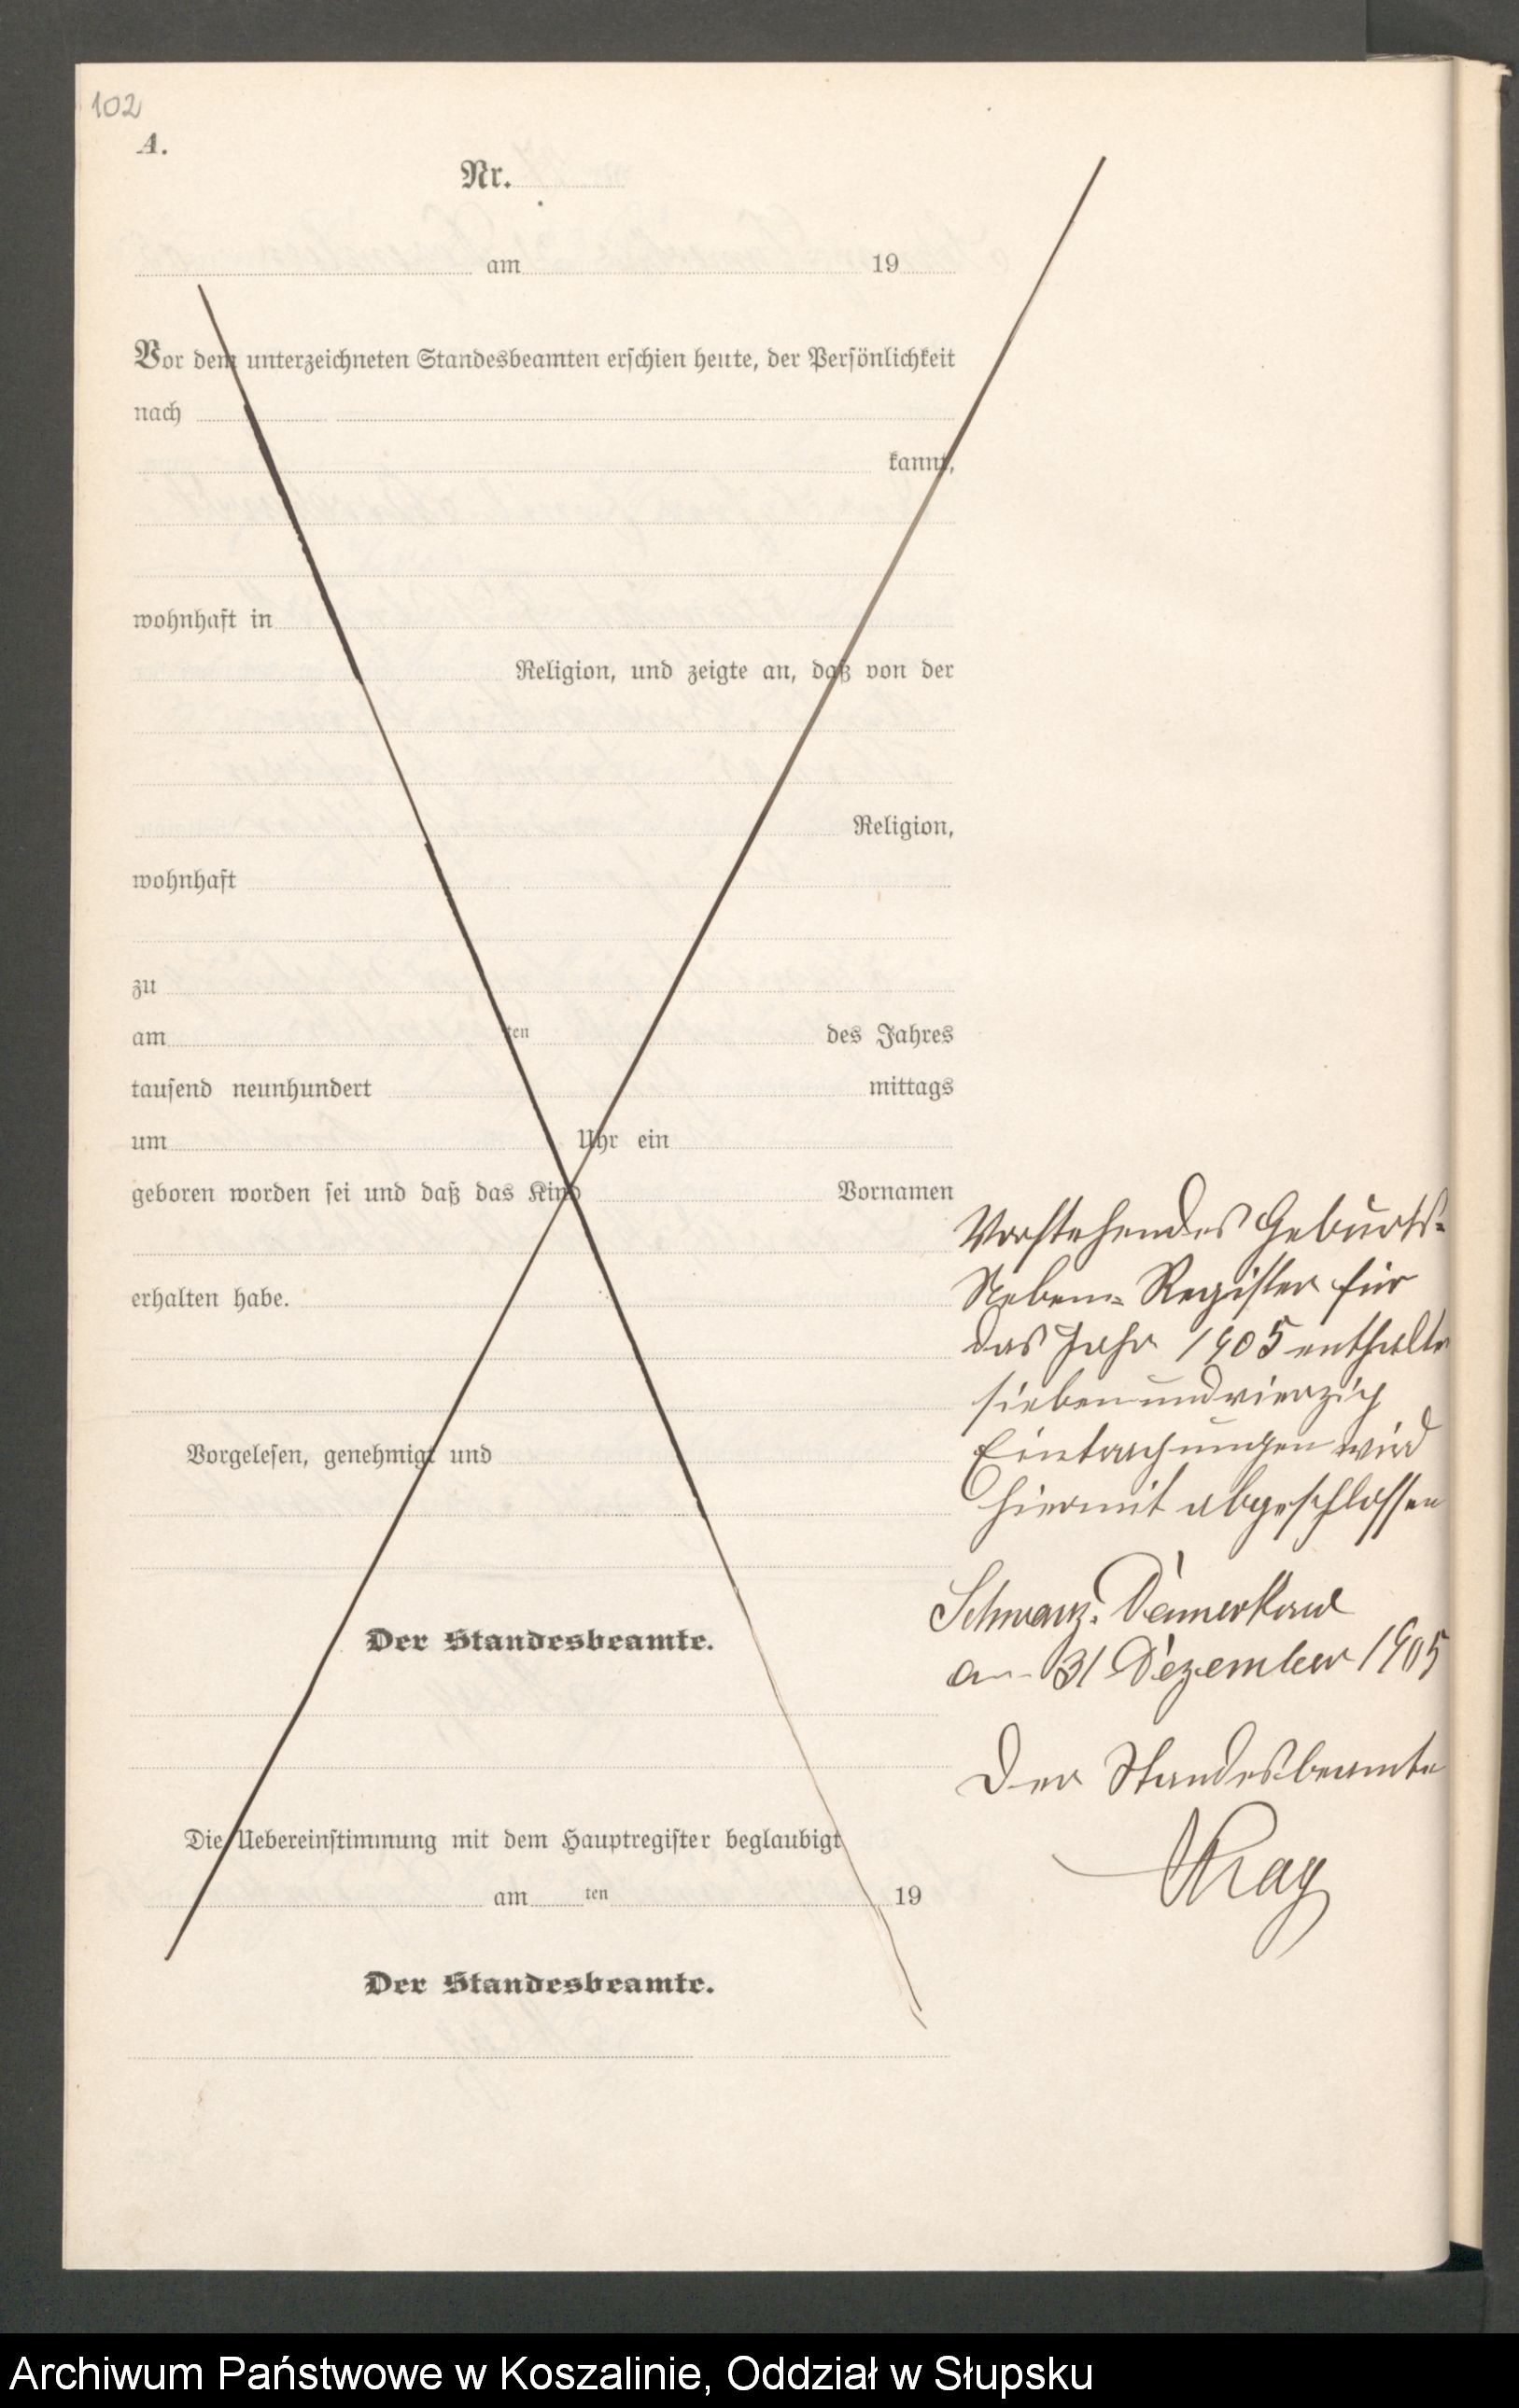 102
A.
Nr.
am 19
Vor dem unterzeichneten Standesbeamten erschien heute, der Persönlichkeit
nach
kannt,
wohnhaft in
Religion, und zeigte an, daß von der
Religion,
wohnhaft
zu
am ten des Jahres
tausend neunhundert mittags
um Uhr ein
geboren worden sei und daß das Kind Vornamen
erhalten habe.
Vorgelesen, genehmigt und
Der Standesbeamte.
Die Uebereinstimmung mit dem Hauptregister beglaubigt
am ten 19
Der Standesbeamte.
Vorstehendes Geburts-
Neben-Register für
das Jahr 1905 enthalte
siebenundvierzig
Eintragungen wird
hiermit abgeschlossen
Schwarz. Damerkow
am 31 Dezember 1905
Der Standesbeamte
Archiwum Państwowe w Koszalinie, Oddział w Słupsku